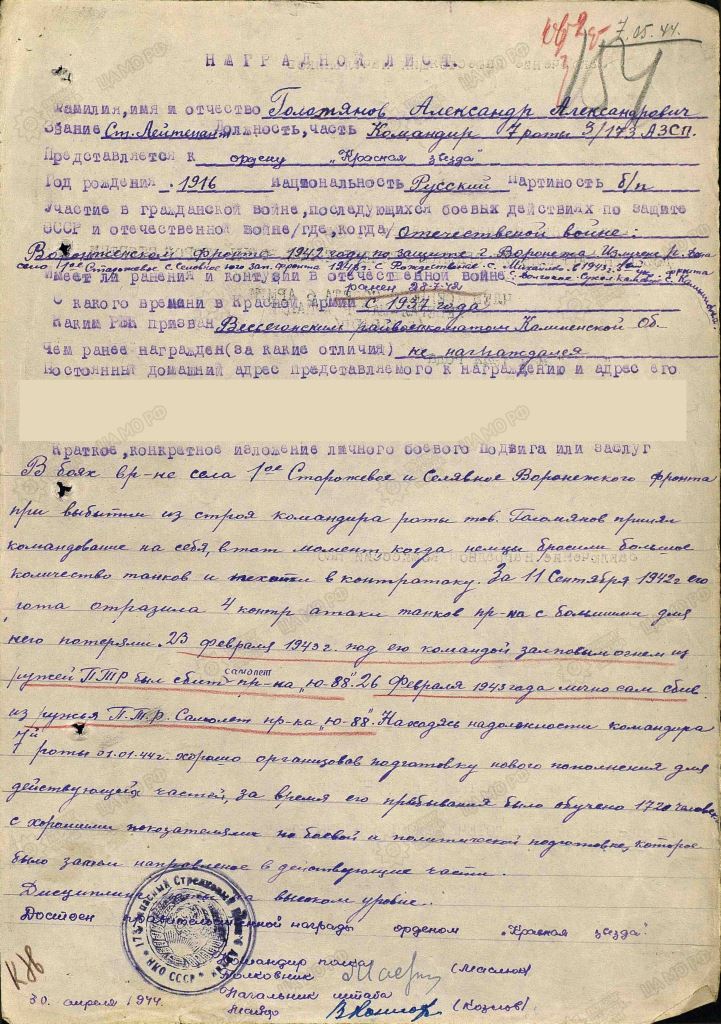 7.05.44.
НАГРАДНОЙ ЛИСТ.
Фамилия, имя и отчество Александр Александрович
Звание Ст. Лейтенант Должность, часть Командир 7 роты 3/173 АЗСП.
Представляется к ордену "Красная звезда"
Год рождения 1916 Национальность Русский Партиность б/п
Участие в гражданской войне, последующихся боевых действиях по защите
СССР и отечественной войне/где, когда/ отечественой войне:
Воронженском фронте 1942 году по защите г. Воронежа
село 1ое Старожевое с.
Имеет ли ранения и контузии в отечественной войне ранен 28.7.42
С какого времени в Красной Армии с 1937 года
Каким РВК призван Весьегонским райвоенкоматом Калиненской Об-
Чем ранее награжден(за какие отличия) не награждался
Постоянный домашний адрес представляемого к награждению и адрес его
Краткое, конкретное изложение личного боевого подвига или заслуг
В боях в р-не села 1ое Старожевое и Селявное Воронежского фронта
при выбытии из строя командира роты тов. принял
командование на себя, в тот момент, когда немцы бросили большое
количество танков и пехоты в контратаку. За 11 Сентября 1942 г его
рота отразила 4 контр атаки танков пр-ка с большими для
него потерями. 23 февраля 1943 г. под его командой залповым огнем из
ружей ПТР был сбит самолет пр-ка "Ю-88". 26 Февраля 1943 года лично сам сбив
из ружья П.Т.Р. Самолет пр-ка "Ю-88". Находясь на должности командира
7й роты 01.01.44 г. хорошо организовав подготовку нового пополнения для
действующей частей, за время его пребывания было обучено 1720 человек
с хорошими показателями по боевой и политической подготовке, которое
было затем направленое в действующие части.
Дисциплина на высоком уровне.
Достоен правительственной награды орденом "Красная звезда".
173 Запасный Стрелковый
НКО СССР
Командир полка
Полковник (Маслюк)
Начальник штаба
Майор (Козлов)
30. апреля 1944.